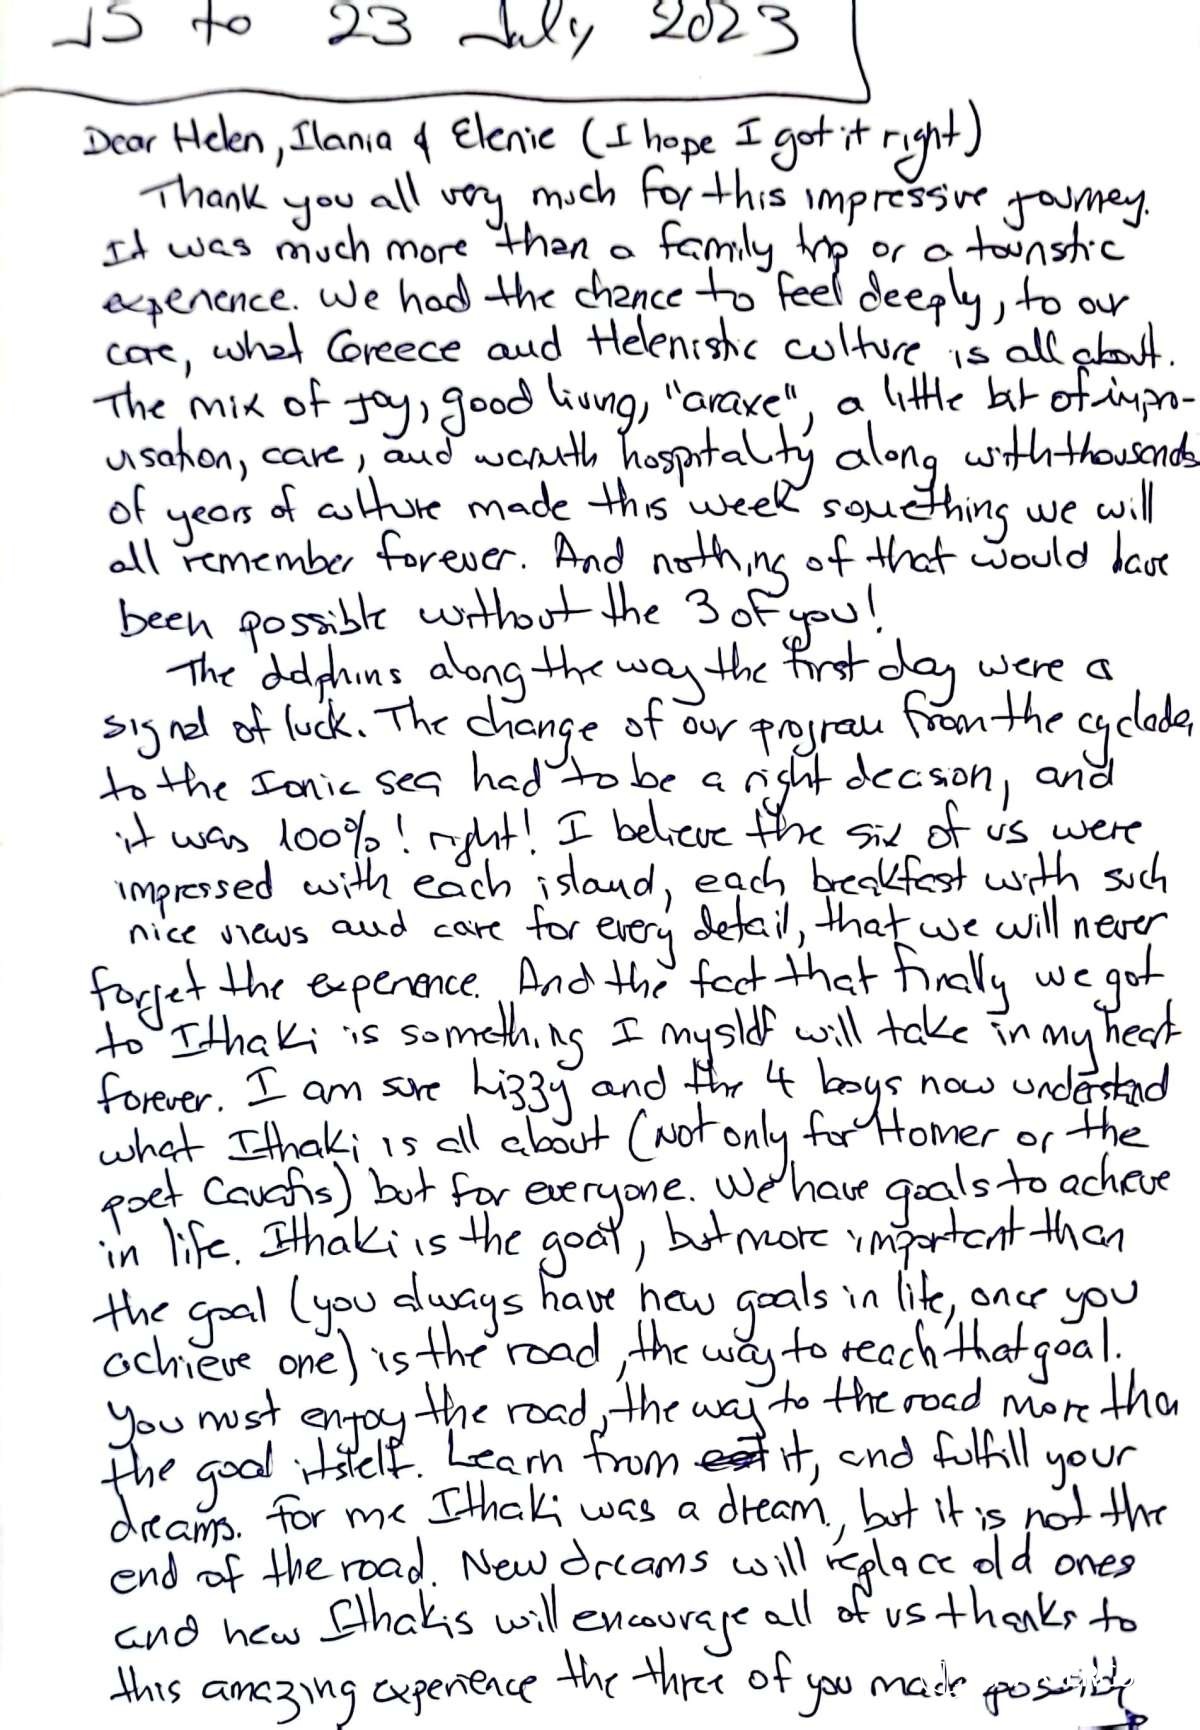 15 to 23 July 2023
Dear Helen, Ilania & Elenie (I hope I got it right)
Thank you all very much for this impressive journey.
It was much more than a family trip or a touristic
experience. We had the chance to feel deeply, to our
core, what Greece and Helenistic culture is all about.
The mix of joy, good living, "araxe", a little bit of impro-
visation, care, and warmth hospitality along with thousands
of years of culture made this week something we will
all remember forever. And nothing of that would have
been possible without the 3 of you!
The dolphins along the way the first day were a
signal of luck. The change of our program from the cyclades
to the Ionic sea had to be a right decision, and
it was 100%! right! I believe the six of us were
impressed with each island, each breakfast with such
nice views and care for every detail, that we will never
forget the experience. And the fact that finally we got
to Ithaki is something I myself will take in my heart
forever. I am sure Lizzy and the 4 boys now understand
what Ithaki is all about (Not only for Homer or the
poet Cavafis) but for everyone. We have goals to achieve
in life. Ithaki is the goal, but more important than
the goal (you always have new goals in life, once you
achieve one) is the road, the way to reach that goal.
You must enjoy the road, the way to the road more than
the goal itself. Learn from it, and fulfill your
dreams. For me Ithaki was a dream, but it is not the
end of the road. New dreams will replace old ones
and new Ithakis will encourage all of us thanks to
this amazing experience the three of you made possible